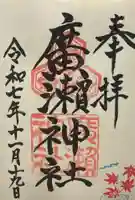 奉拝
廣瀬神社
令和七年十一月十九日